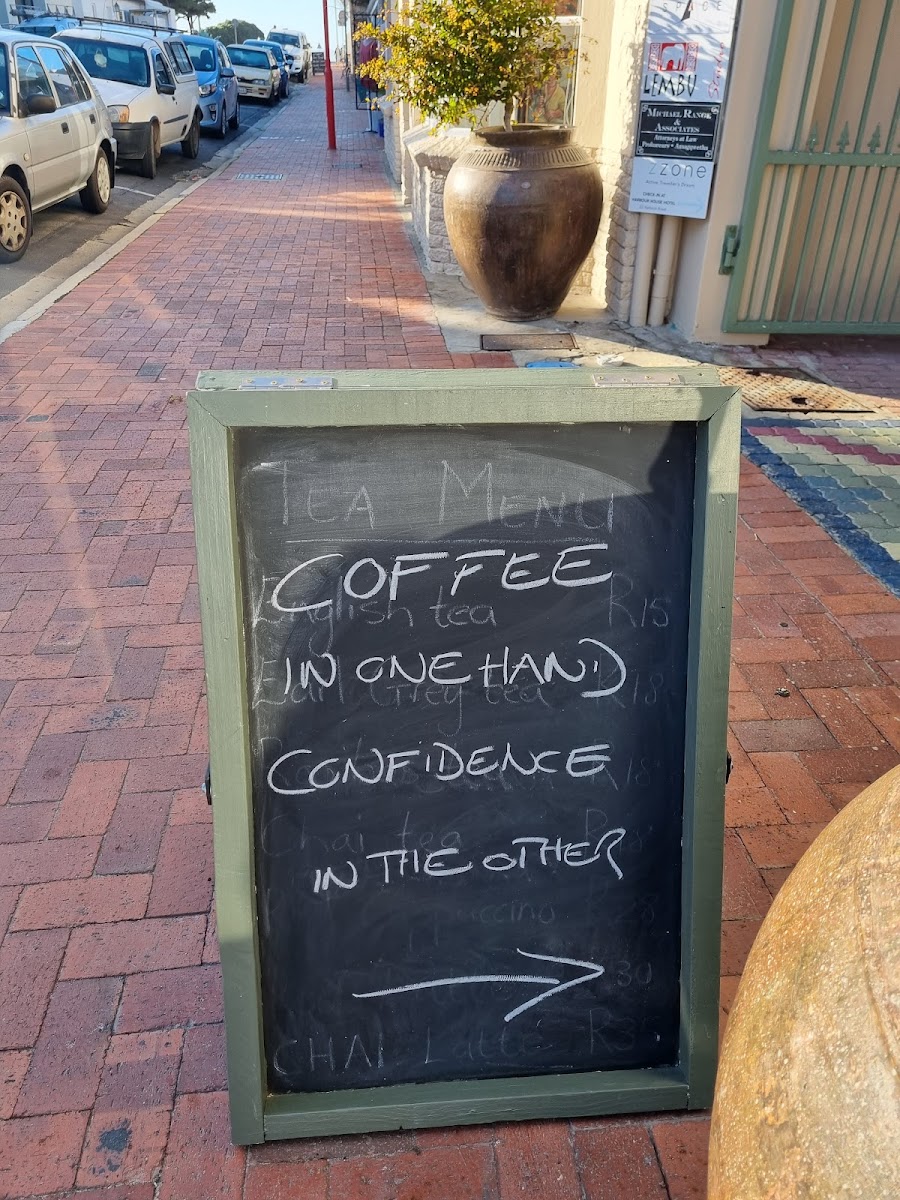 SPACE
LEMBU
MICHAEL RANGE
& ASSOCIATES
Attorneys at Law
ZZONE
CHECK-IN AT
HARBOUR HOUSE HOTEL
TEA MENU
COFFEE
English tea R15
IN ONE HAND
Earl Grey tea R18
CONFIDENCE
R18
Chai tea
IN THE OTHER
R28
30
CHAI Latte R35